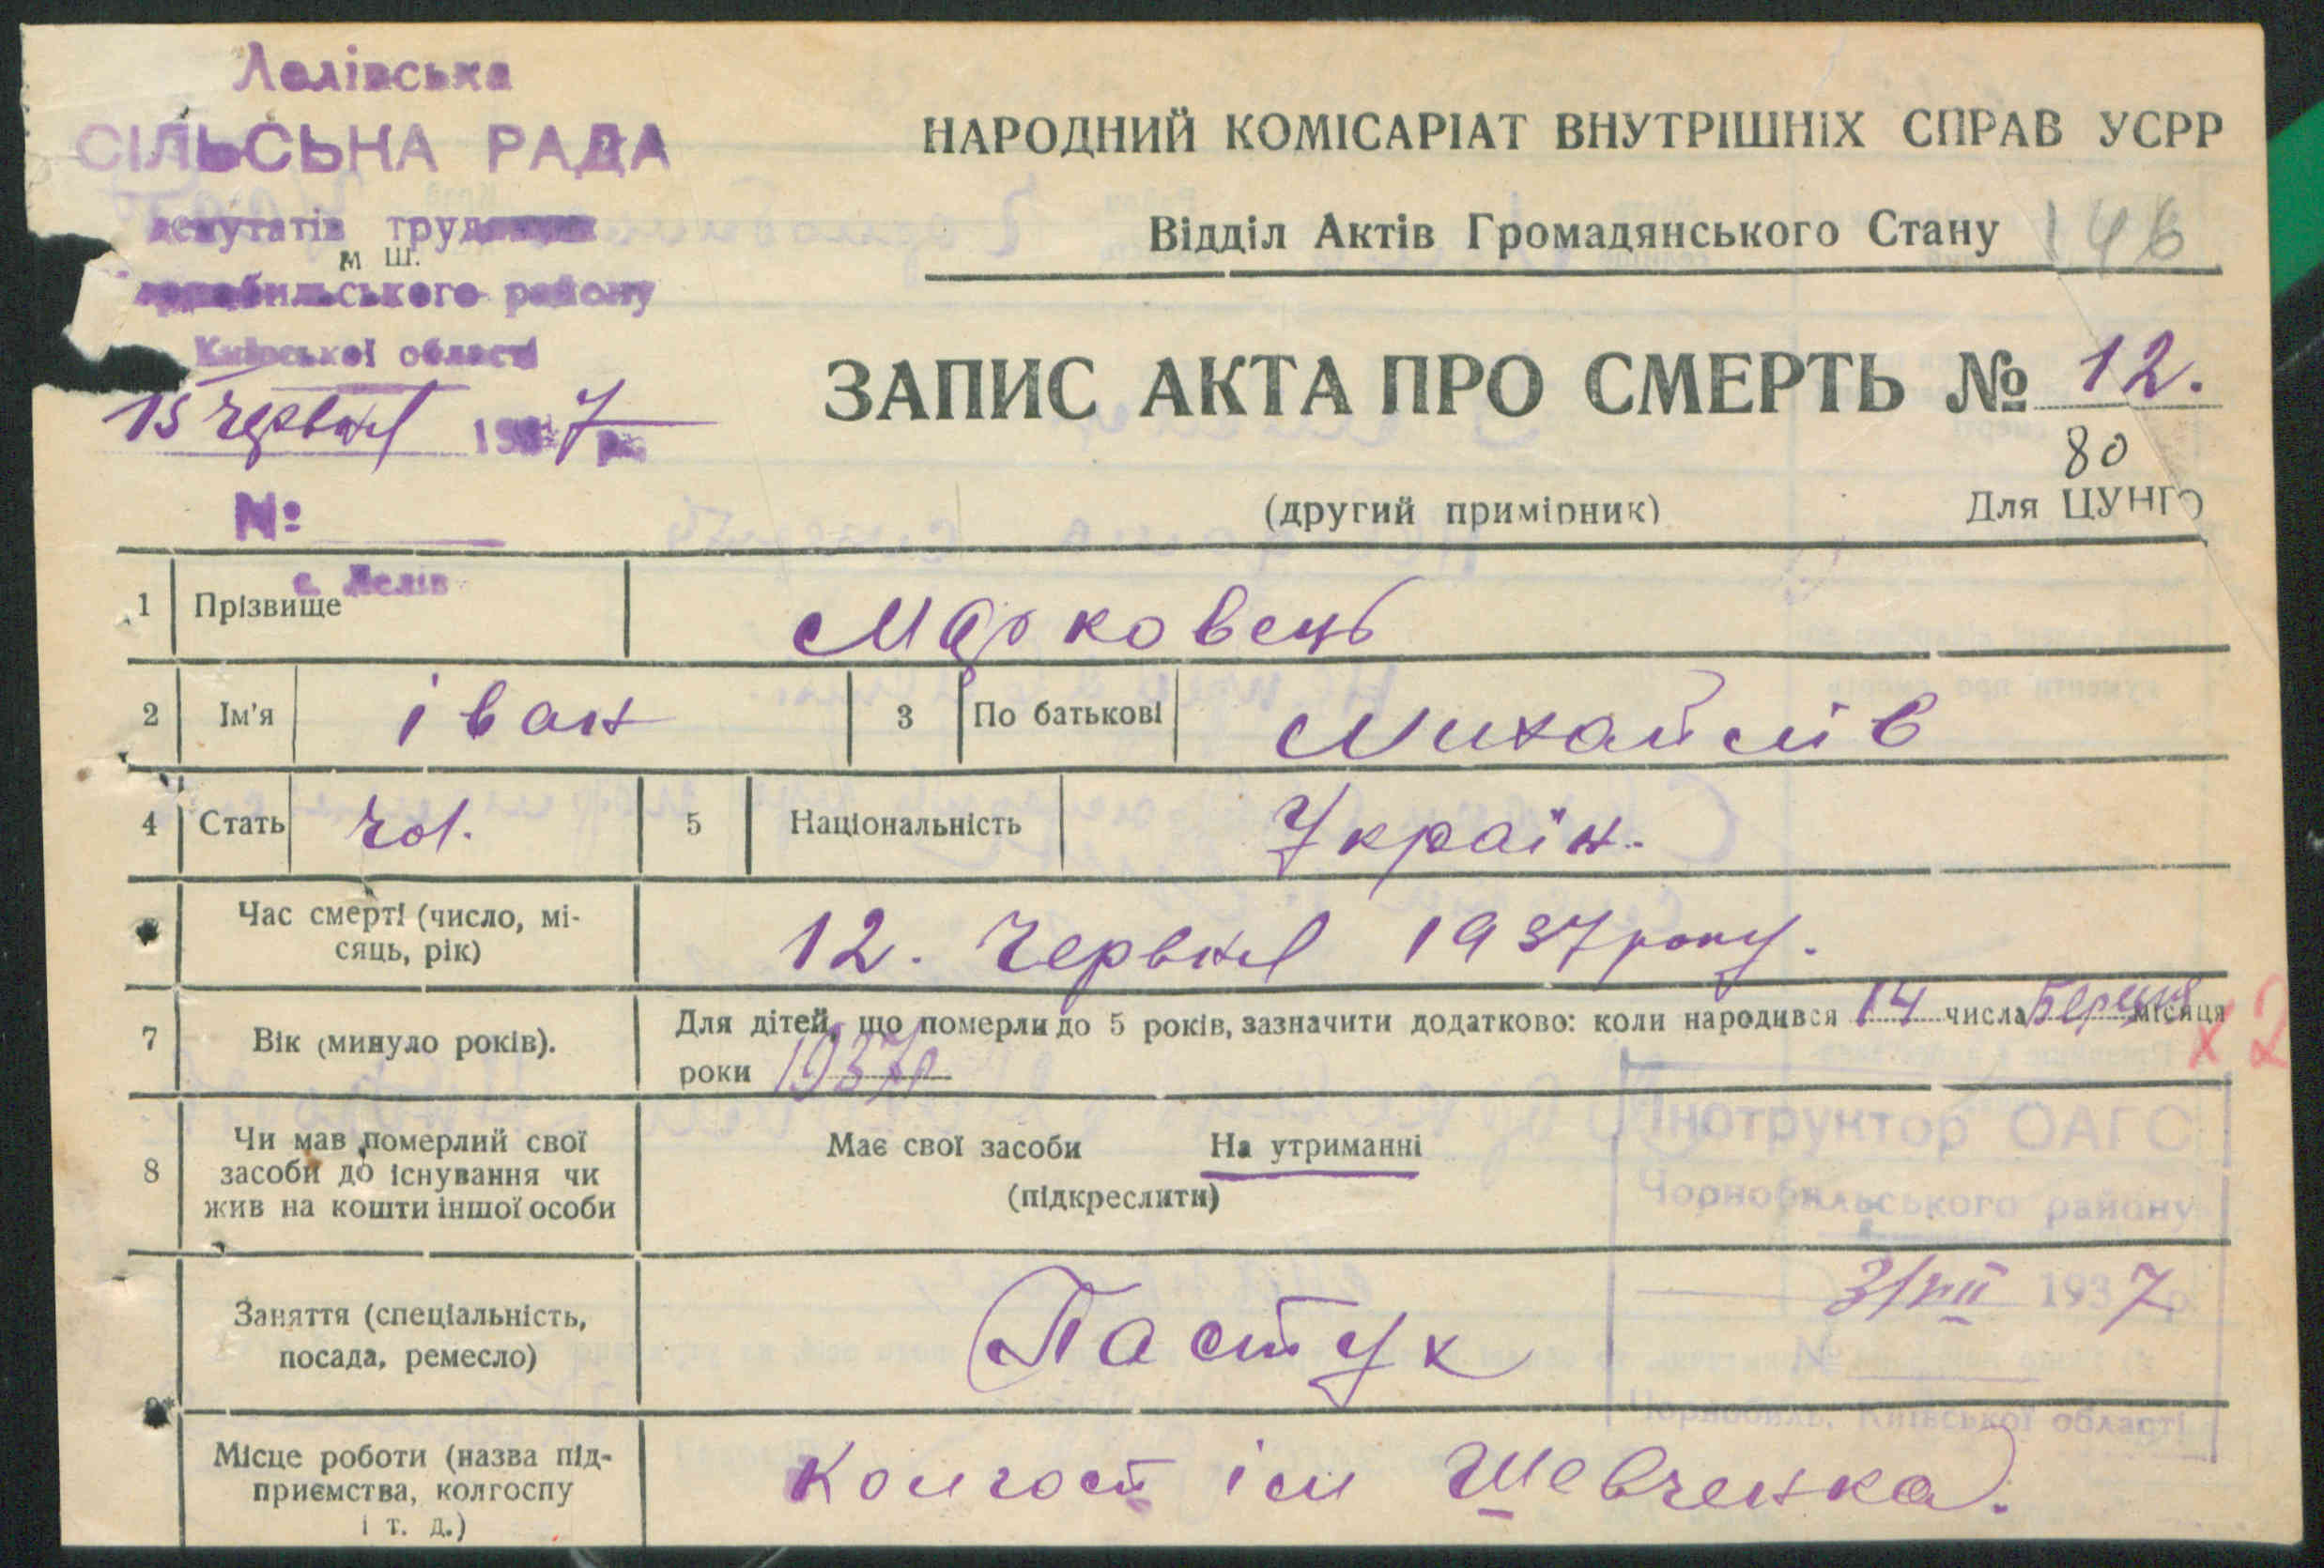 Лелівська
СІЛЬСЬКА РАДА
депутатів трудящих
м ш.
Чорнобильського району
Київської області
15 червня 1937 р.
№
с. Лелів
НАРОДНИЙ КОМІСАРІАТ ВНУТРІШНІХ СПРАВ УСРР
Відділ Актів Громадянського Стану 146
ЗАПИС АКТА ПРО СМЕРТЬ № 12.
80
(другий примірник) Для ЦУНГО
1 Прізвище Марковець
2 Ім'я іван 3 По батькові Михайлів
4 Стать чол. 5 Національність Україн.
Час смерті (число, мі-
сяць, рік) 12. Червня 1937 року.
7 Вік (минуло років). Для дітей, що померли до 5 років, зазначити додатково: коли народився 14 числа Березня місяця
роки 1937р
х 2
8 Чи мав померлий свої
засоби до існування чи
жив на кошти іншої особи
Має свої засоби На утриманні
(підкреслити)
Інструктор ОАГС
Чорнобильського району
3/VII 1937 р.
№
Чорнобиль, Київської області
9* Заняття (спеціальність,
посада, ремесло) Пастух
Місце роботи (назва під-
приємства, колгоспу
і т. д.) Колгосп ім Шевченка.